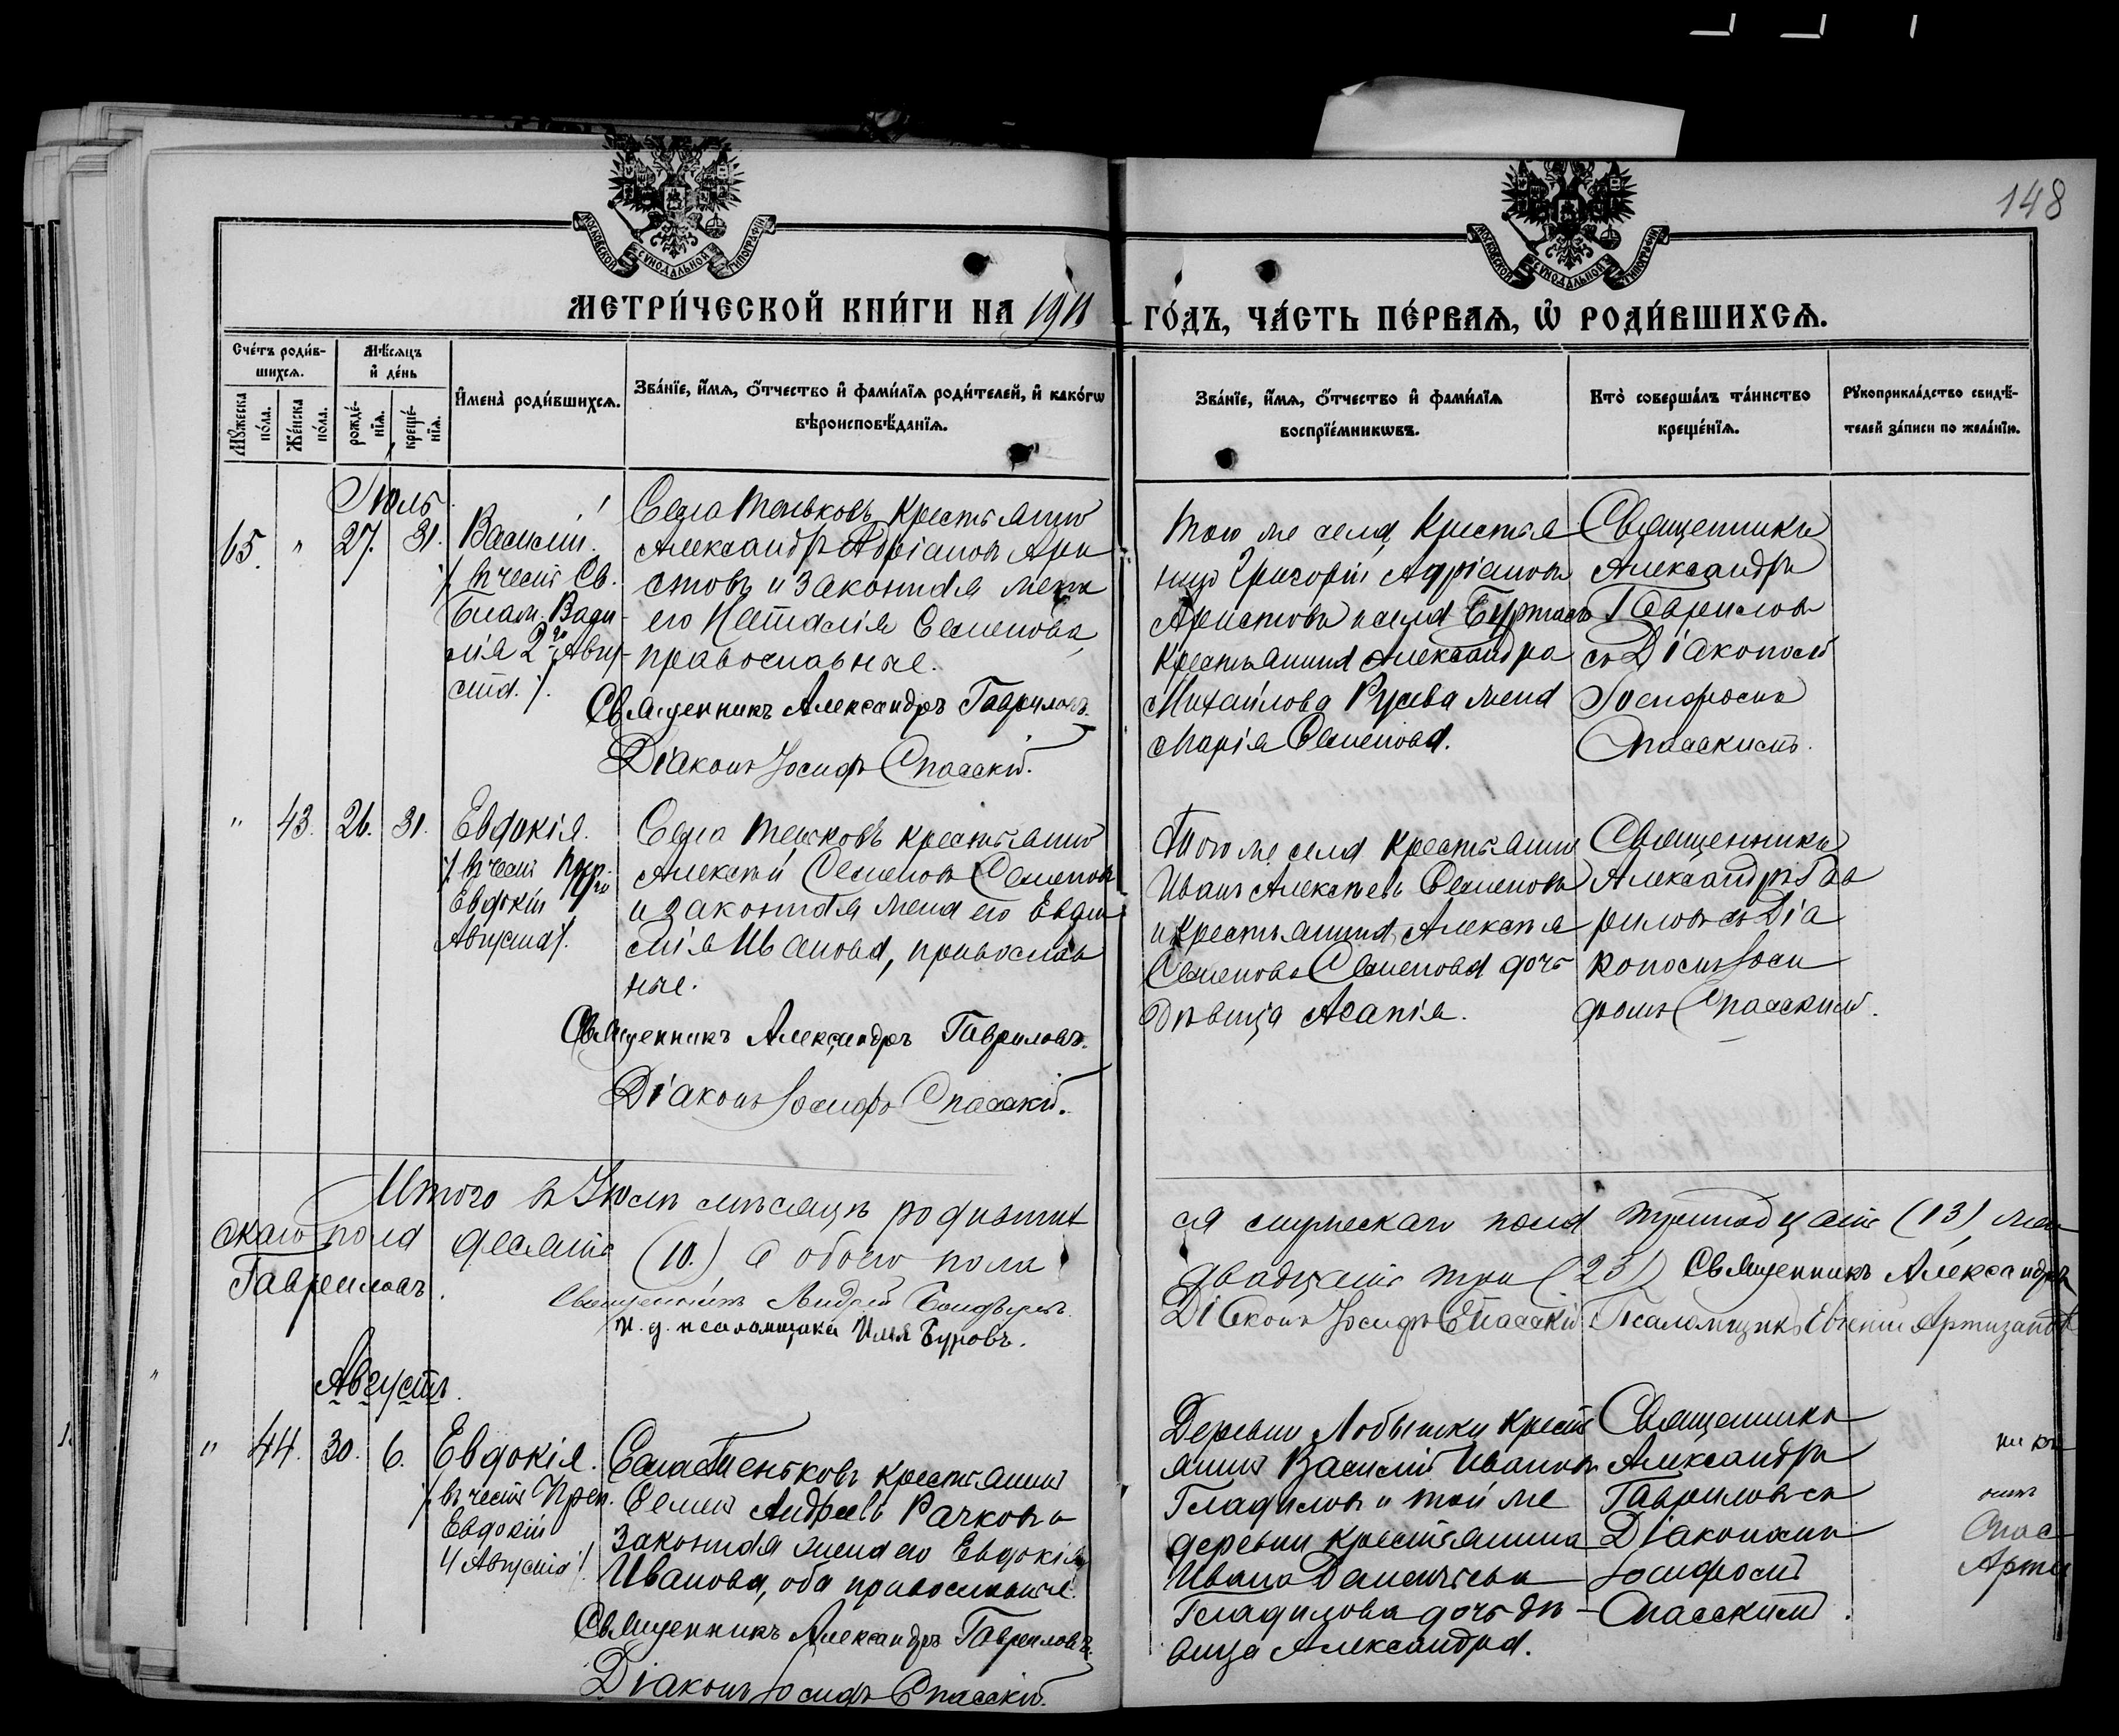 148
МОСКОВСКОЙ СѴНОДАЛЬНОЙ ТИПОГРАФІИ
МОСКОВСКОЙ СѴНОДАЛЬНОЙ ТИПОГРАФІИ
МЕТРИ́ЧЕСКОЙ КНИ́ГИ НА 1911 ГО́ДЪ, ЧА́СТЬ ПЕ́РВАѦ, Ѡ҆ РОДИ́ВШИХСѦ.
Сче́тъ роди́в-
шихсѧ.
Мѣ́сѧцъ
и҆ де́нь
И҆мена̀ роди́вшихсѧ.
Зва́нїе, и҆́мѧ, ѻ҆́тчество и҆ фами́лїѧ роди́телей, и҆ како́гѡ
вѣроисповѣ́данїѧ.
Мꙋ́жеска
по́ла.
Же́нска
по́ла.
рожде́-
нїѧ.
креще́-
нїѧ.
Зва́нїе, и҆́мѧ, ѻ҆́тчество и҆ фами́лїѧ
воспрїе́мникѡвъ.
Кто̀ соверша́лъ та́инство
креще́нїѧ.
Рꙋкоприкла́дство свидѣ́-
телей за́писи по жела́нїю.
Іюль
65. " 27. 31. Василій.
въ честь Св.
Блаж. Васи-
лія 2го Авгу-
ста.
Села Теньковъ крестьянинъ
Александръ Адріановъ Ари
стовъ и законная жена
его Наталія Семенова,
православные.
Священникъ Александръ Гавриловъ.
Діаконъ Іосифъ Спасскій.
Того же села крестья
нинъ Григорій Адріановъ
Аристовъ и села Буртасъ
крестьянина Александра
Михайлова Русева жена
Марія Семенова.
Священникъ
Александръ
Гавриловъ
съ Діакономъ
Іосифомъ
Спасскимъ.
" 43. 26. 31. Евдокія.
въ честь Прп.
Евдокіи
Августа
Села Теньковъ крестьянинъ
Алексѣй Семеновъ Семеновъ
и законная жена его Евдо
Ивановна, православ
ные.
Священникъ Александръ Гавриловъ.
Діаконъ Іосифъ Спасскій.
Того же села крестьянинъ
Иванъ Алексѣевъ Семеновъ
и крестьянина Алексѣя
Семенова Семенова дочь
дѣвица Агапія.
Священникъ
Александръ Гав
риловъ съ Діа
кономъ Іоси
фомъ Спасскимъ.
Итого въ Іюлѣ мѣсяцѣ родивших
ся мужескаго пола тринадцать (13) жен
скаго пола десять (10.) а обоего пола
двадцать три (23) Священникъ Александръ
Гавриловъ.
Діаконъ Іосифъ Спасскій Псаломщикъ Евгеній Артизановъ
Священникъ Андрей
И. д. псаломщика Илья Буровъ.
Августъ.
" 44. 30. 6. Евдокія.
въ честь Преп.
Евдокіи
4 Августа
Села Теньковъ крестьянинъ
Семенъ Андреевъ Рачковъ и
законная жена его Евдокія
Иванова, оба православные.
Священникъ Александръ Гавриловъ.
Діаконъ Іосифъ Спасскій.
Деревни Лобышки крестъ
янинъ Василій Ивановъ
Гладиловъ и той же
деревни крестьянина
Ивана Дементьева
Гладилова дочь дѣ-
вица Александра.
Священникъ
Александръ
Гавриловъ съ
Діакономъ
Іосифомъ
Спасскимъ.
Спас
Арти